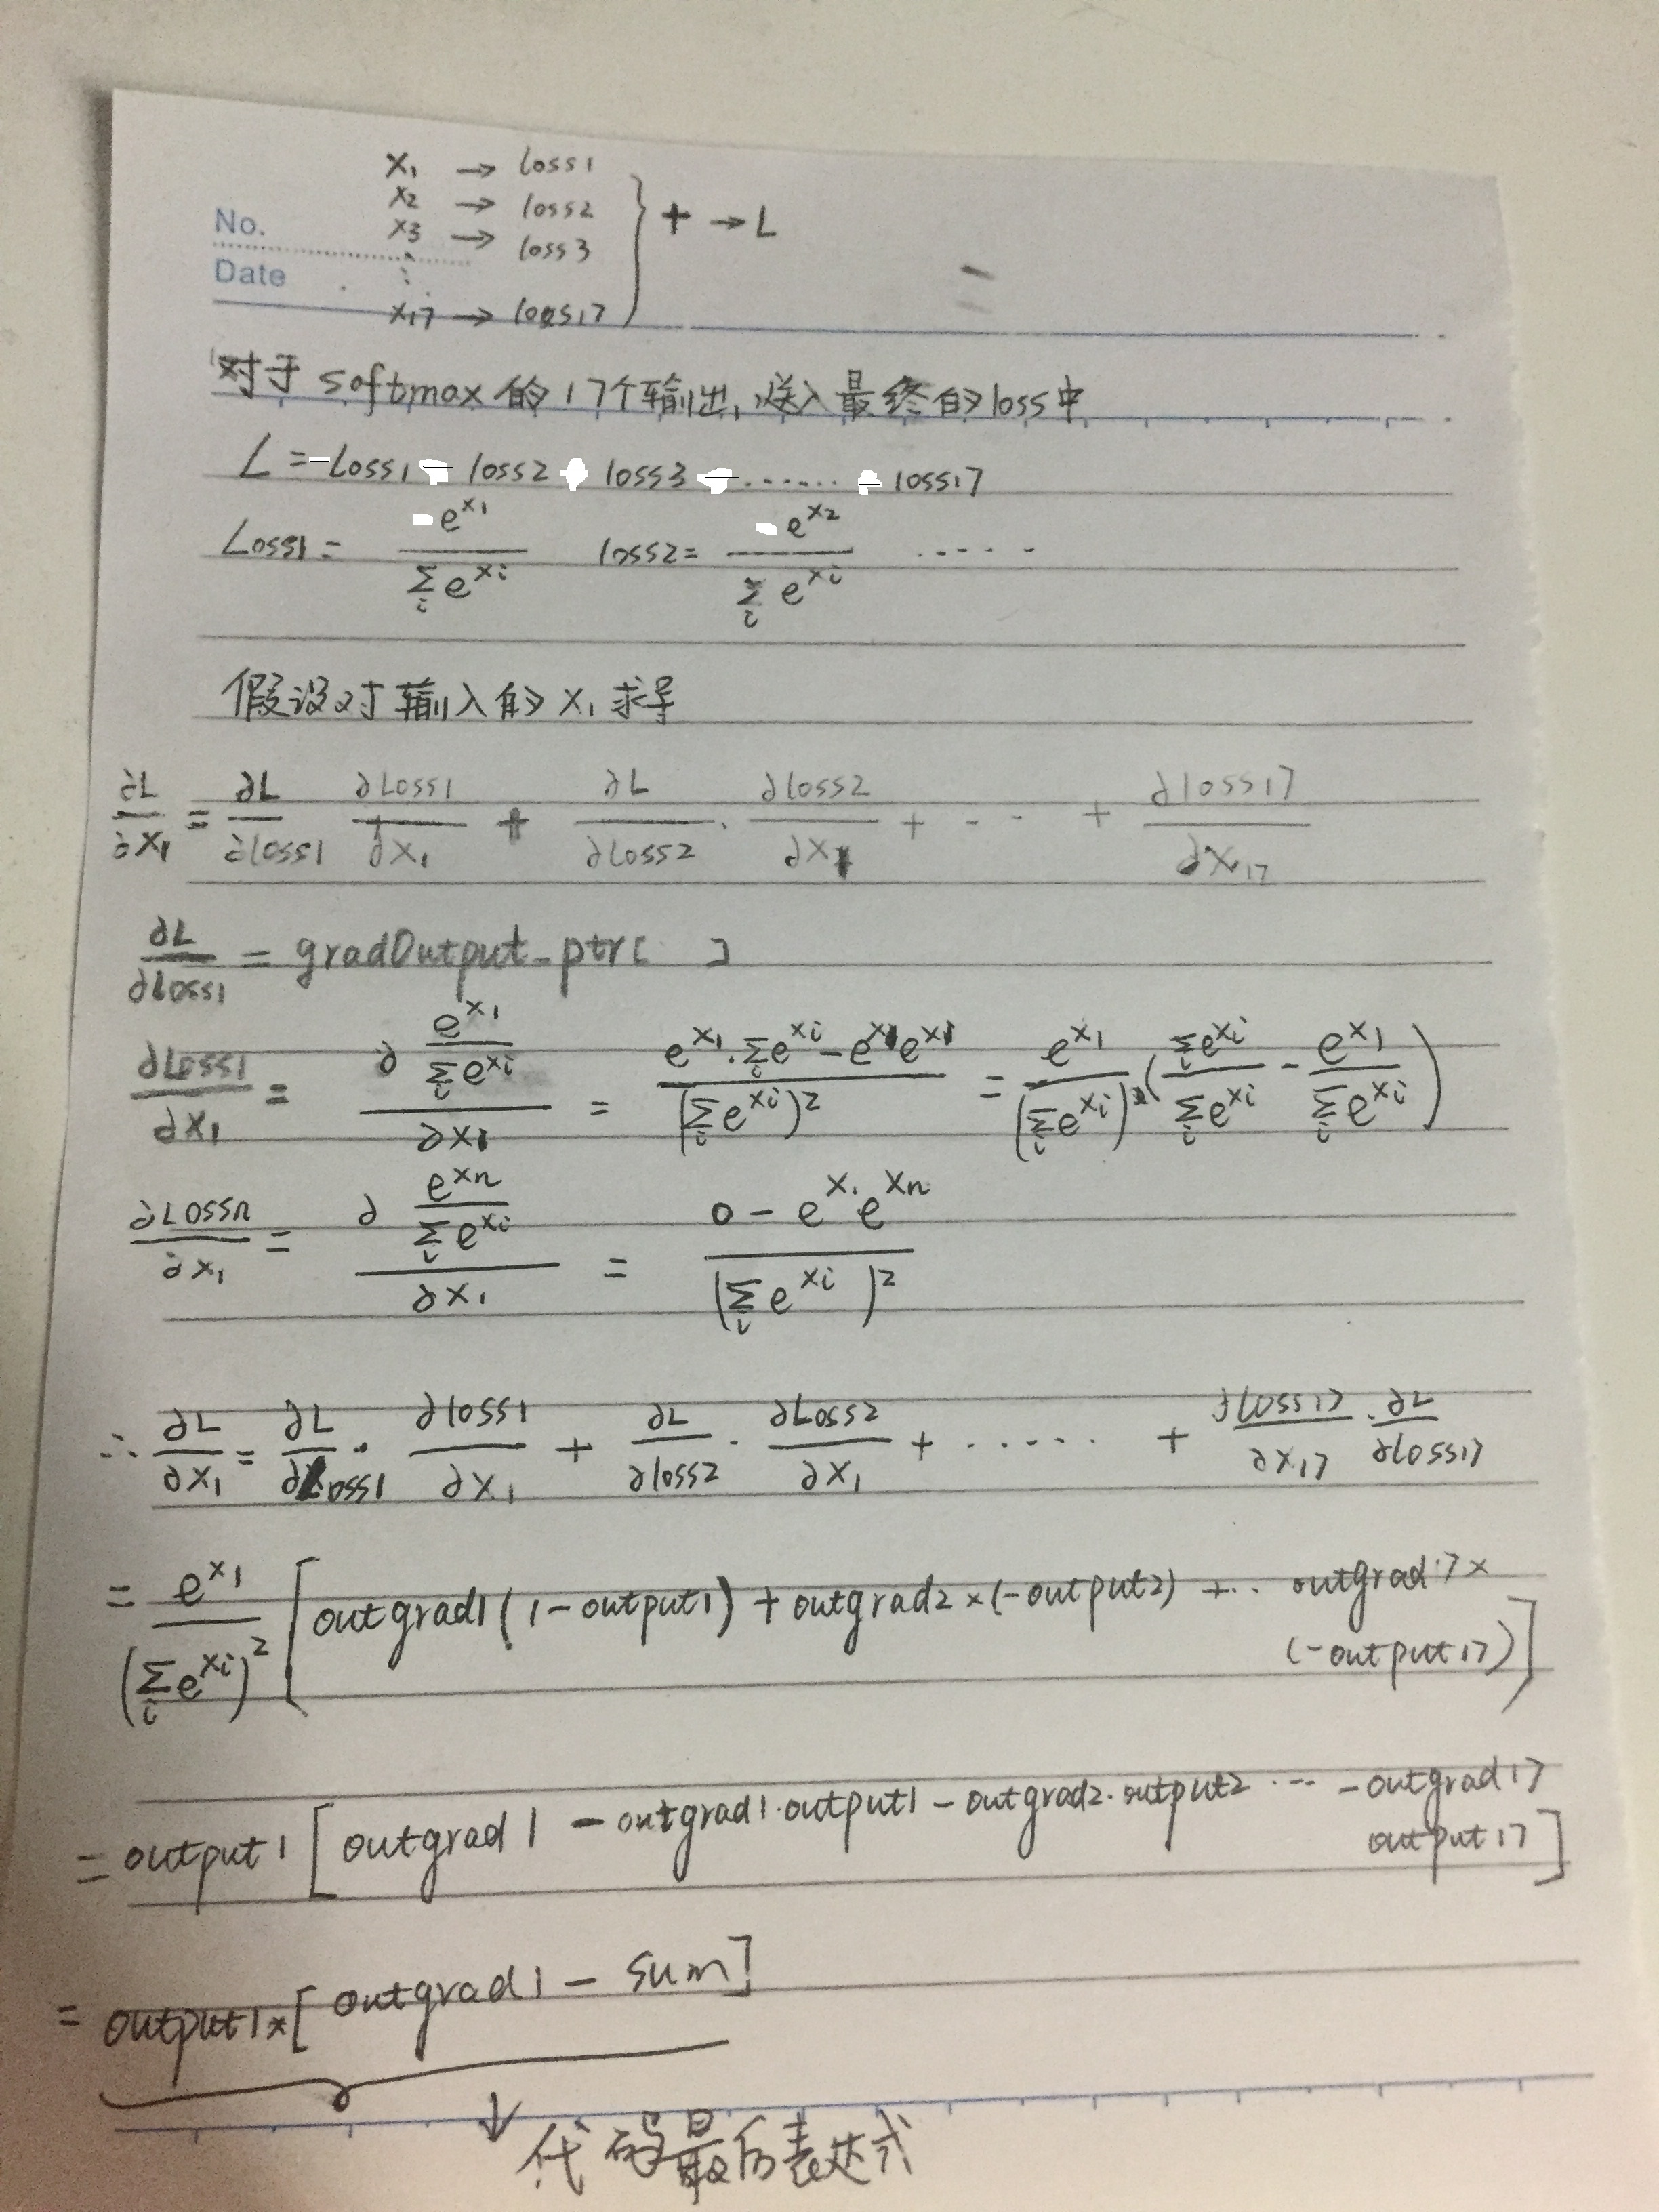 x₁ → loss1
x₂ → loss2
No.
x₃ → loss3
} + → L
Date
⋮
x₁₇ → loss17
对于 softmax 的 17个输出, 送入最终的 loss中
L = -Loss1 loss2 loss3 ...... loss17
Loss1 = -e^{x₁} / Σ_i e^{x_i} loss2 = -e^{x₂} / Σ_i e^{x_i} .....
假设对输入的 x₁ 求导
∂L/∂x₁ = ∂L/∂loss1 ∂Loss1/∂x₁ + ∂L/∂Loss2 · ∂loss2/∂x₁ + - - + ∂loss17/∂x₁₇
∂L/∂Loss1 = gradOutput_ptr[ ]
∂Loss1/∂x₁ = ∂ (e^{x₁} / Σ_i e^{x_i}) / ∂x₁ = (e^{x₁} · Σ_i e^{x_i} - e^{x₁} e^{x₁}) / (Σ_i e^{x_i})² = e^{x₁} / (Σ_i e^{x_i}) (Σ_i e^{x_i} / Σ_i e^{x_i} - e^{x₁} / Σ_i e^{x_i})
∂Lossn/∂x₁ = ∂ (e^{xn} / Σ_i e^{x_i}) / ∂x₁ = (0 - e^{x₁} e^{xn}) / (Σ_i e^{x_i})²
∴ ∂L/∂x₁ = ∂L/∂Loss1 · ∂loss1/∂x₁ + ∂L/∂loss2 · ∂Loss2/∂x₁ + ..... + ∂Loss17/∂x₁₇ · ∂L/∂loss17
= e^{x₁} / (Σ_i e^{x_i})² [ outgrad1 (1-output1) + outgrad2 × (-output2) + .. outgrad17 ×
(-output17) ]
= output1 [ outgrad1 - outgrad1·output1 - outgrad2·output2 ... - outgrad17
output17 ]
= output1 × [ outgrad1 - sum ]
↓ 代码最后表达式